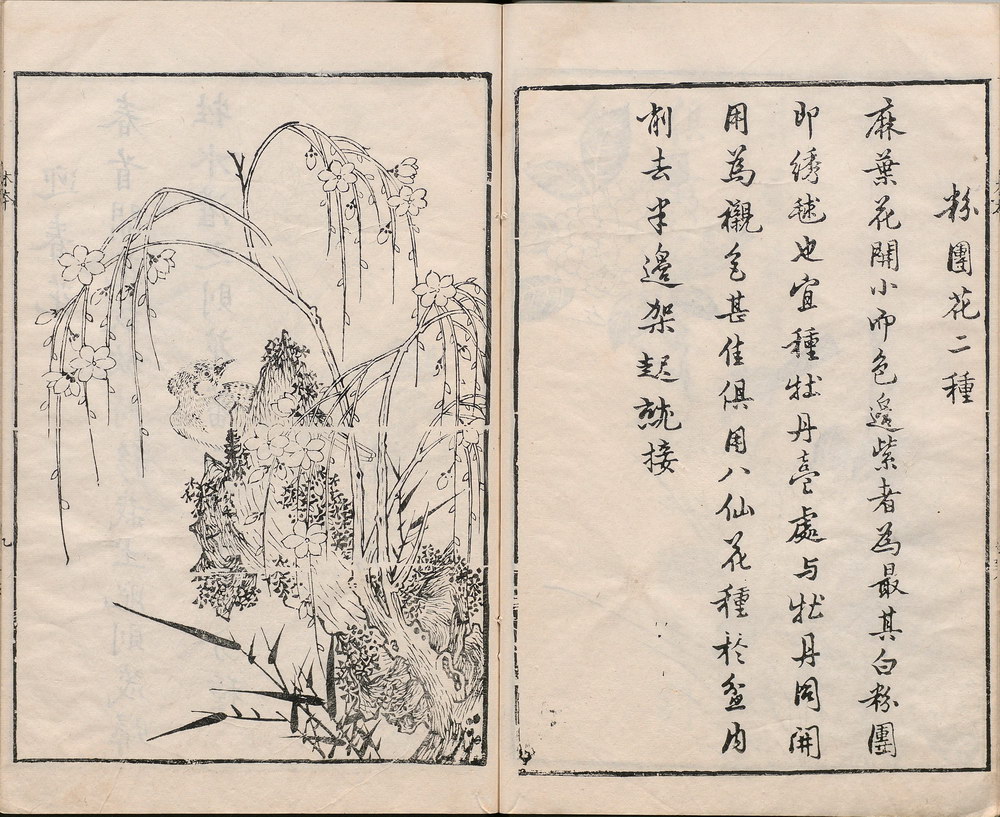 粉團花二種
麻葉花開小而色邊紫者為最其白粉團
即绣毬也宜種牡丹臺處与牡丹同開
用為襯色甚佳俱用八仙花種於盆内
削去半邊架起就接